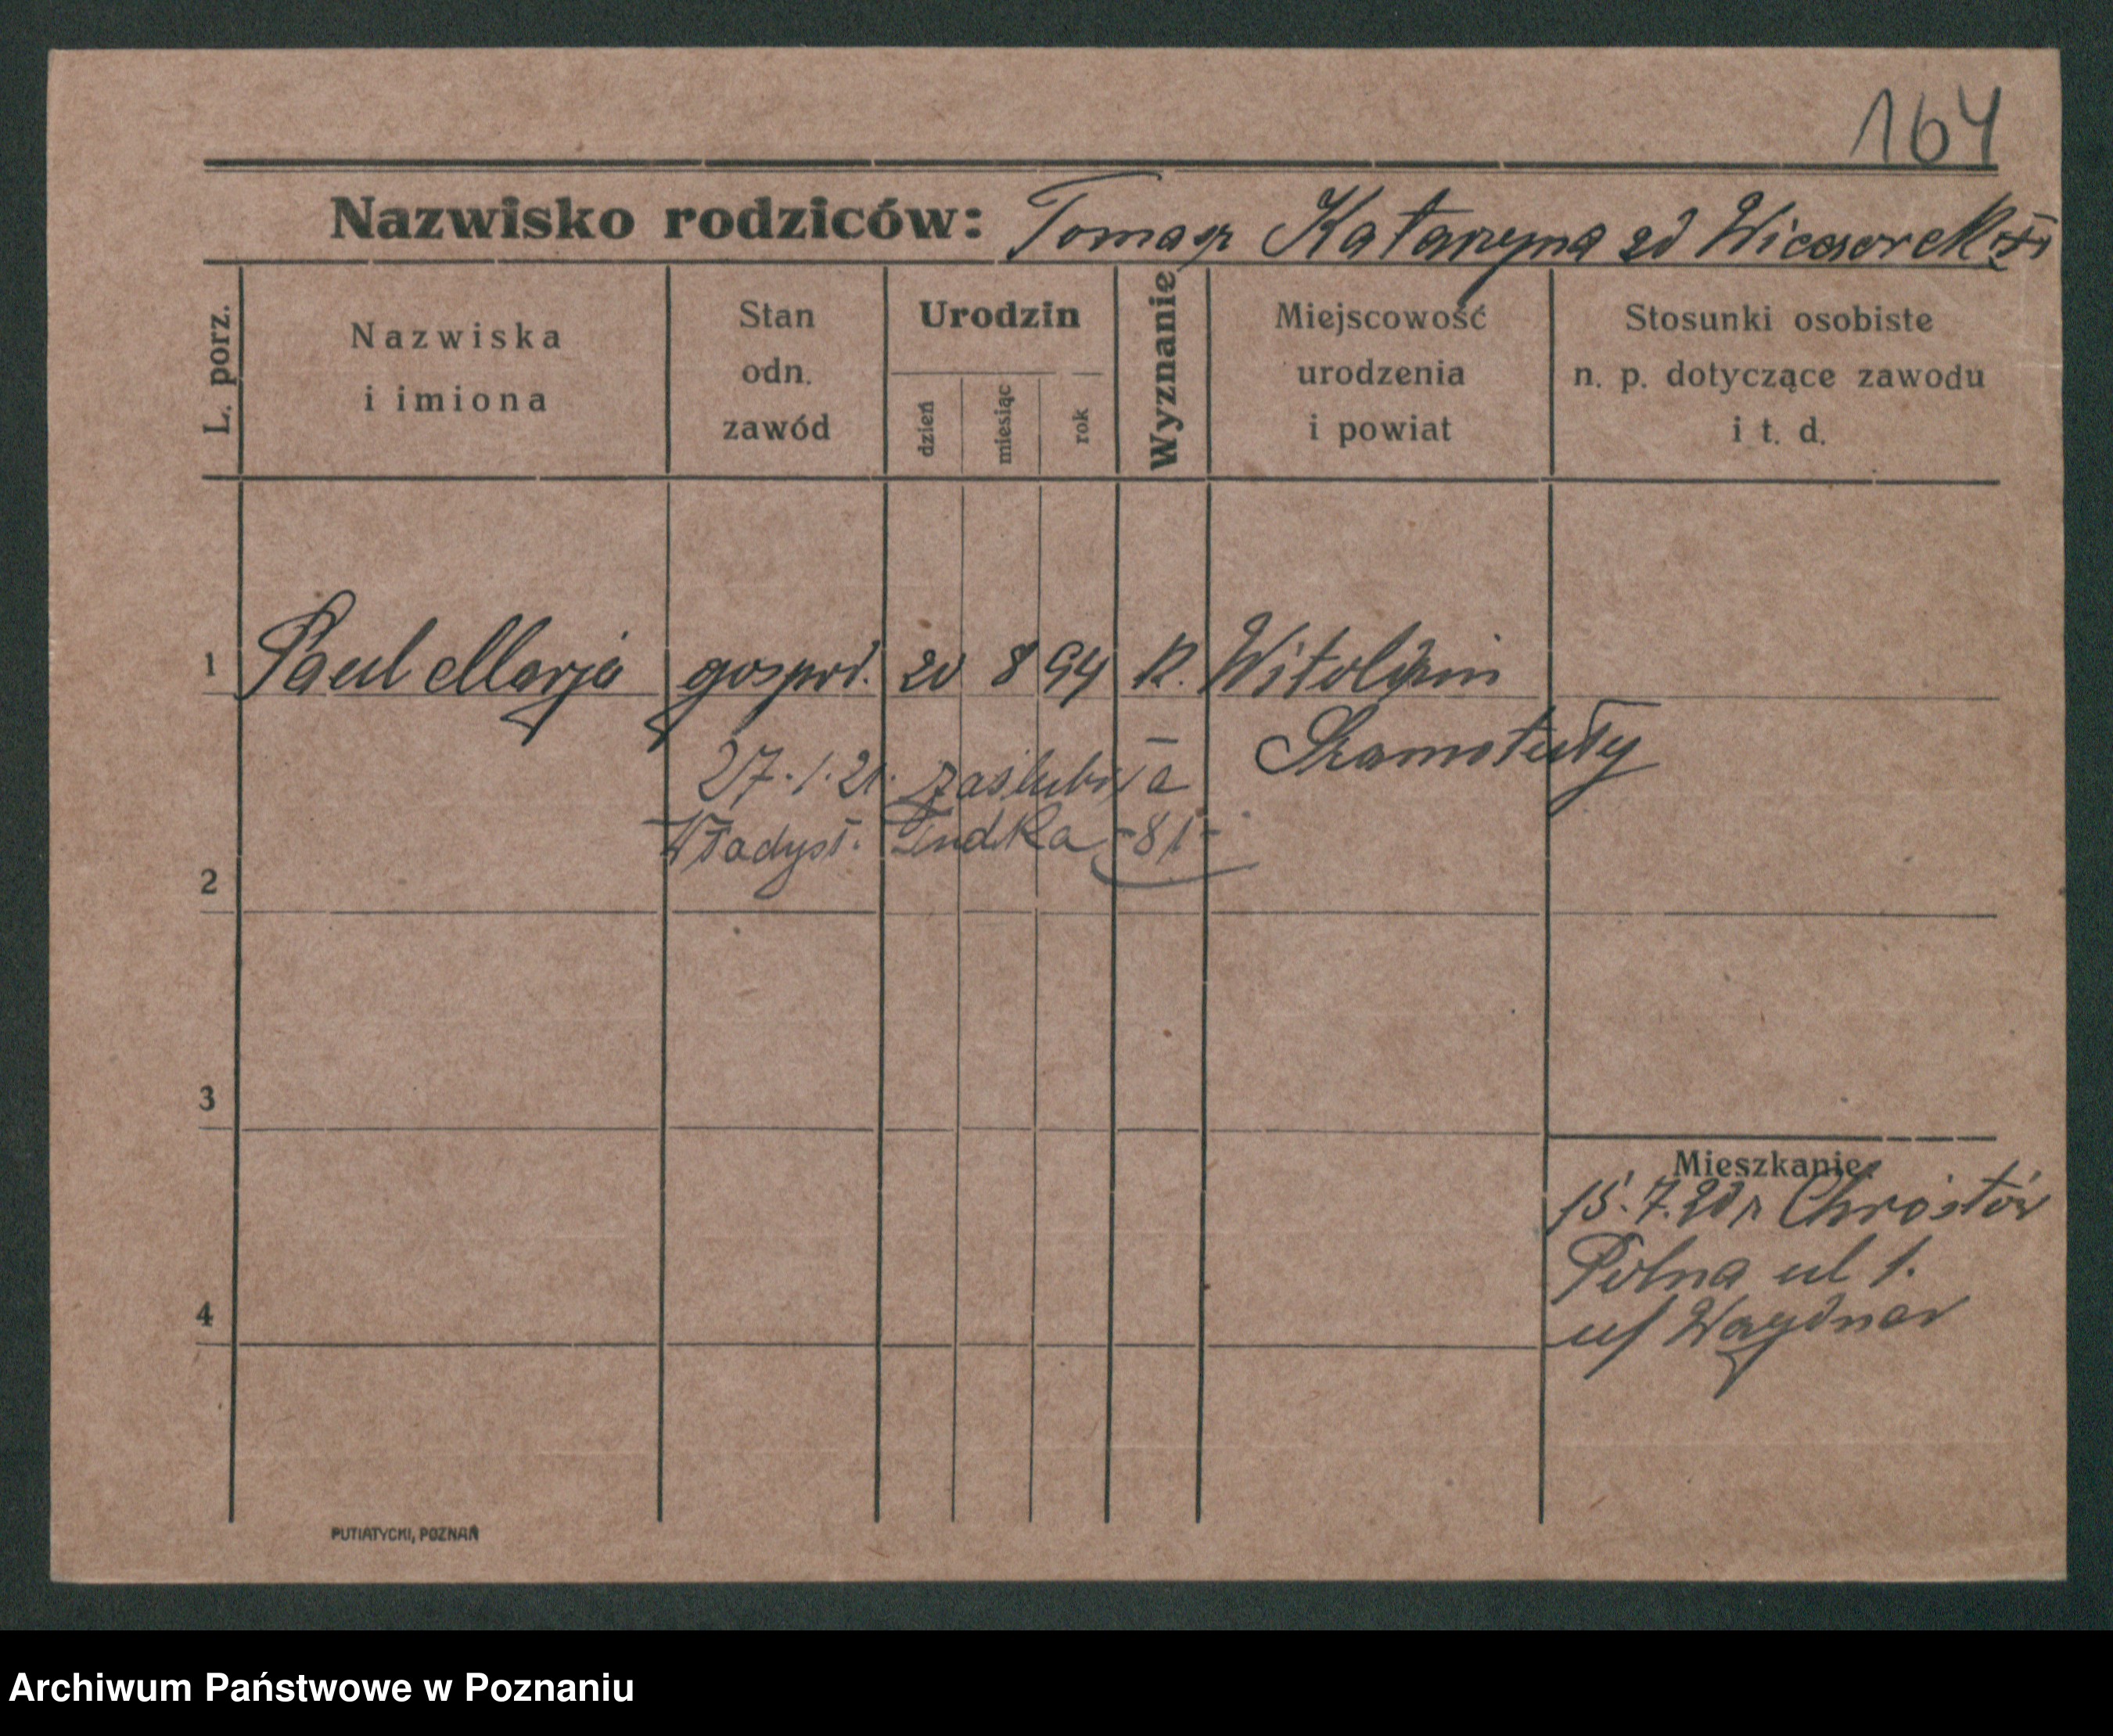 164
Nazwisko rodziców: Tomasz Katarzyna zd Wieczorek
L. porz.
Nazwiska
i imiona
Stan
odn.
zawód
Urodzin
dzień
miesiąc
rok
Wyznanie
Miejscowość
urodzenia
i powiat
Stosunki osobiste
n. p. dotyczące zawodu
i t. d.
1 Paul Marja gospod. 20 8 94 R.
Szamotuły
27.1.21. zaślubiła
Władysł. Tudka -81-
2
3
4
Mieszkanie
15.7.20 r
Polna ul 1.
u/
PUTIATYCKI, POZNAŃ
Archiwum Państwowe w Poznaniu